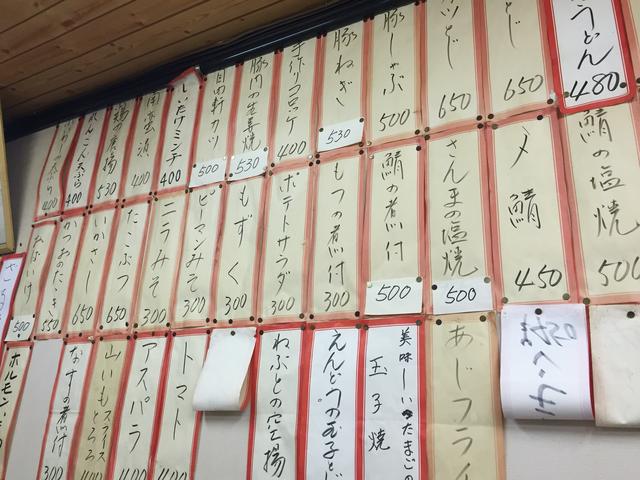 うどん
480
とじ
650
カツとじ
650
豚しゃぶ
500
豚ねぎ
530
手作りコロッケ
400
豚肉の生姜焼
530
自由軒カツ
500
しいたけミンチ
400
南蛮漬
400
鶏の唐揚
530
れんこん天ぷら
400
天ぷら
400
鯖の塩焼
500
〆鯖
450
さんまの塩焼
500
鯖の煮付
500
もつの煮付
300
ポテトサラダ
300
もずく
300
ピーマンみそ
300
ニラみそ
300
たこぶつ
650
いかさし
650
かつおのたゝき
550
500
あじフライ
美味しいたまごの
玉子焼
えんどうの玉子とじ
ねぶとの空揚
トマト
400
アスパラ
400
山いもとろろ
スライス
400
なすの煮付
300
ホルモン